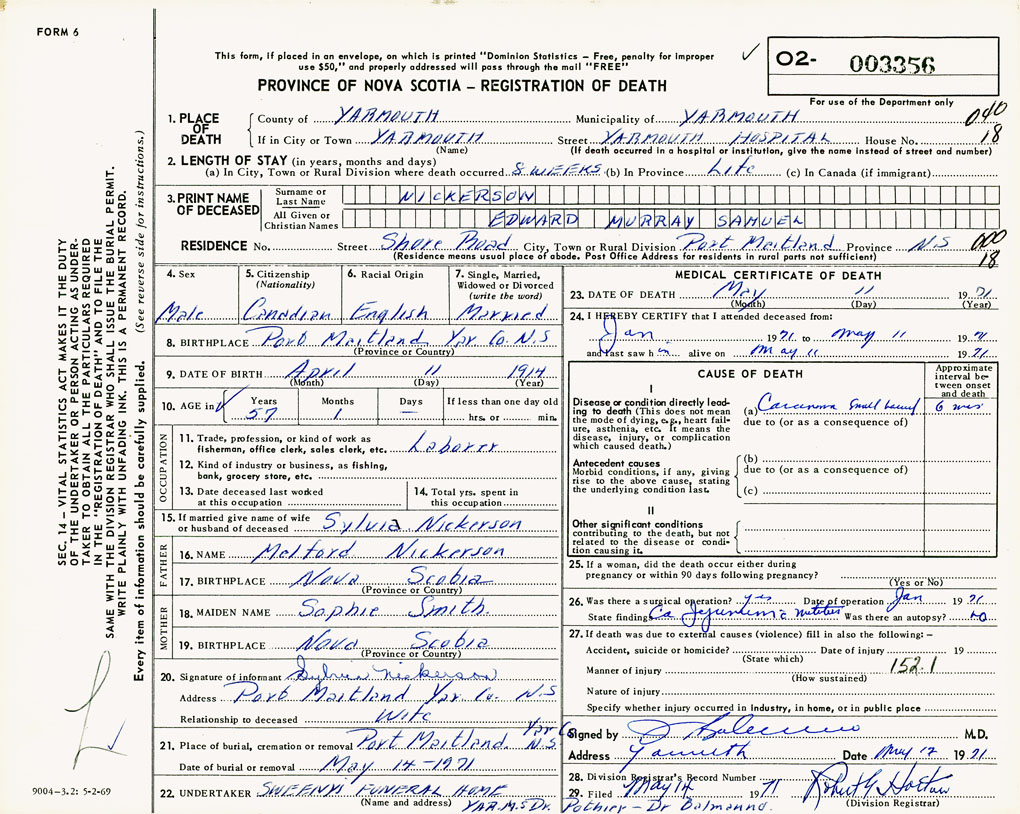 FORM 6
This form, if placed in an envelope, on which is printed "Dominion Statistics - Free, penalty for improper
use $50," and properly addressed will pass through the mail "FREE"
✓ 02- 003356
PROVINCE OF NOVA SCOTIA – REGISTRATION OF DEATH
For use of the Department only
1. PLACE OF DEATH County of YARMOUTH Municipality of YARMOUTH 040
If in City or Town YARMOUTH Street YARMOUTH HOSPITAL House No. 18
(Name) (If death occurred in a hospital or institution, give the name instead of street and number)
2. LENGTH OF STAY (in years, months and days)
(a) In City, Town or Rural Division where death occurred 8 WEEKS (b) In Province Life (c) In Canada (if immigrant)
3. PRINT NAME OF DECEASED Surname or Last Name NICKERSON
All Given or Christian Names EDWARD MURRAY SAMUEL
RESIDENCE No. Street Shore Road City, Town or Rural Division Port Maitland Province N.S 000
(Residence means usual place of abode. Post Office Address for residents in rural parts not sufficient) 18
4. Sex Male
5. Citizenship (Nationality) Canadian
6. Racial Origin English
7. Single, Married, Widowed or Divorced (write the word) Married
8. BIRTHPLACE Port Maitland Yar Co. N.S
(Province or Country)
9. DATE OF BIRTH April 11 1914
(Month) (Day) (Year)
10. AGE in ✓ Years 57 Months 1 Days – If less than one day old hrs. or min.
OCCUPATION
11. Trade, profession, or kind of work as fisherman, office clerk, sales clerk, etc. Laborer
12. Kind of industry or business, as fishing, bank, grocery store, etc.
13. Date deceased last worked at this occupation
14. Total yrs. spent in this occupation
15. If married give name of wife or husband of deceased Sylvia Nickerson
FATHER
16. NAME Melford Nickerson
17. BIRTHPLACE Nova Scotia
(Province or Country)
MOTHER
18. MAIDEN NAME Sophie Smith
19. BIRTHPLACE Nova Scotia
(Province or Country)
20. Signature of informant Sylvia Nickerson
Address Port Maitland Yar Co. N.S
Relationship to deceased Wife
21. Place of burial, cremation or removal Port Maitland Yar Co N.S
Date of burial or removal May 14-1971
22. UNDERTAKER SWEENYS FUNERAL HOME
(Name and address) YAR. N.S
MEDICAL CERTIFICATE OF DEATH
23. DATE OF DEATH May 11 1971
(Month) (Day) (Year)
24. I HEREBY CERTIFY that I attended deceased from:
Jan 1971 to May 11 1971
and last saw h im alive on May 11 1971
CAUSE OF DEATH
Approximate interval between onset and death
I
Disease or condition directly leading to death (This does not mean the mode of dying, e.g., heart failure, asthenia, etc. It means the disease, injury, or complication which caused death.)
(a) Carcinoma Small bowel 6 mos
due to (or as a consequence of)
Antecedent causes
Morbid conditions, if any, giving rise to the above cause, stating the underlying condition last.
(b)
due to (or as a consequence of)
(c)
II
Other significant conditions
contributing to the death, but not related to the disease or condition causing it.
25. If a woman, did the death occur either during
pregnancy or within 90 days following pregnancy?
(Yes or No)
26. Was there a surgical operation? yes Date of operation Jan 1971
State findings Ca Jejunum Was there an autopsy? no
27. If death was due to external causes (violence) fill in also the following: –
Accident, suicide or homicide? Date of injury 19
(State which)
Manner of injury 152.1
(How sustained)
Nature of injury
Specify whether injury occurred in Industry, in home, or in public place
Signed by M.D.
Address Yarmouth Date May 12 1971
28. Division Registrar's Record Number
29. Filed May 14 1971
(Division Registrar)
Dr. Pothier - Dr Balmanno.
SEC. 14 – VITAL STATISTICS ACT MAKES IT THE DUTY
OF THE UNDERTAKER OR PERSON ACTING AS UNDER-
TAKER TO OBTAIN ALL THE PARTICULARS REQUIRED
IN THE "REGISTRATION OF DEATH" AND TO FILE THE
SAME WITH THE DIVISION REGISTRAR WHO SHALL ISSUE THE BURIAL PERMIT.
WRITE PLAINLY WITH UNFADING INK. THIS IS A PERMANENT RECORD.
Every item of information should be carefully supplied. (See reverse side for instructions.)
9004-3.2: 5-2-69